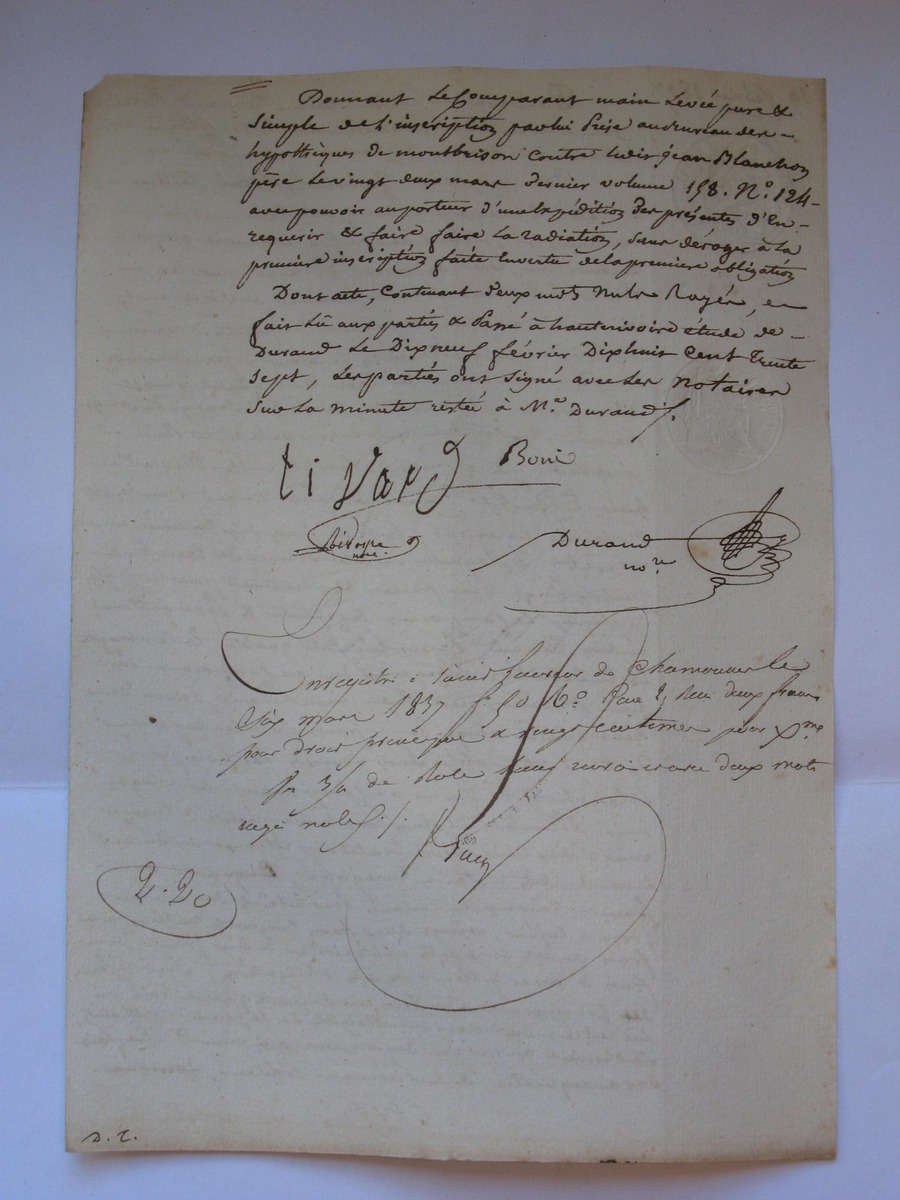 Donnant le Comparant main levée pure &
simple de l'inscription par lui prise au bureau des
hypothèques de montbrison contre ledit jean Blanchon
père le vingt deux mars dernier volume 158. N.º 124
avec pouvoir au porteur d'une Expédition des présentes d'En-
requerir & faire faire la radiation, sans déroger à la
première inscription faite en vertu de la première obligation
Dont acte, contenant deux mots nuls Rayés, en
fait lû aux parties & passé à hauterivoire étude de
Durand le Dix neuf février Dixhuit cent trente
sept, les parties ont signé avec les notaires
sur la minute restée à M.e Durand /.
Boni
Durand
no.re
Enregistré à Saint de le
Six mars 1837 f.º 50 R.º Case 2, Reçu deux francs
pour droit principal & vingt centimes pour X.me
de Role sans renvoi deux mots
rayé nuls ./.
2.20
D. T.